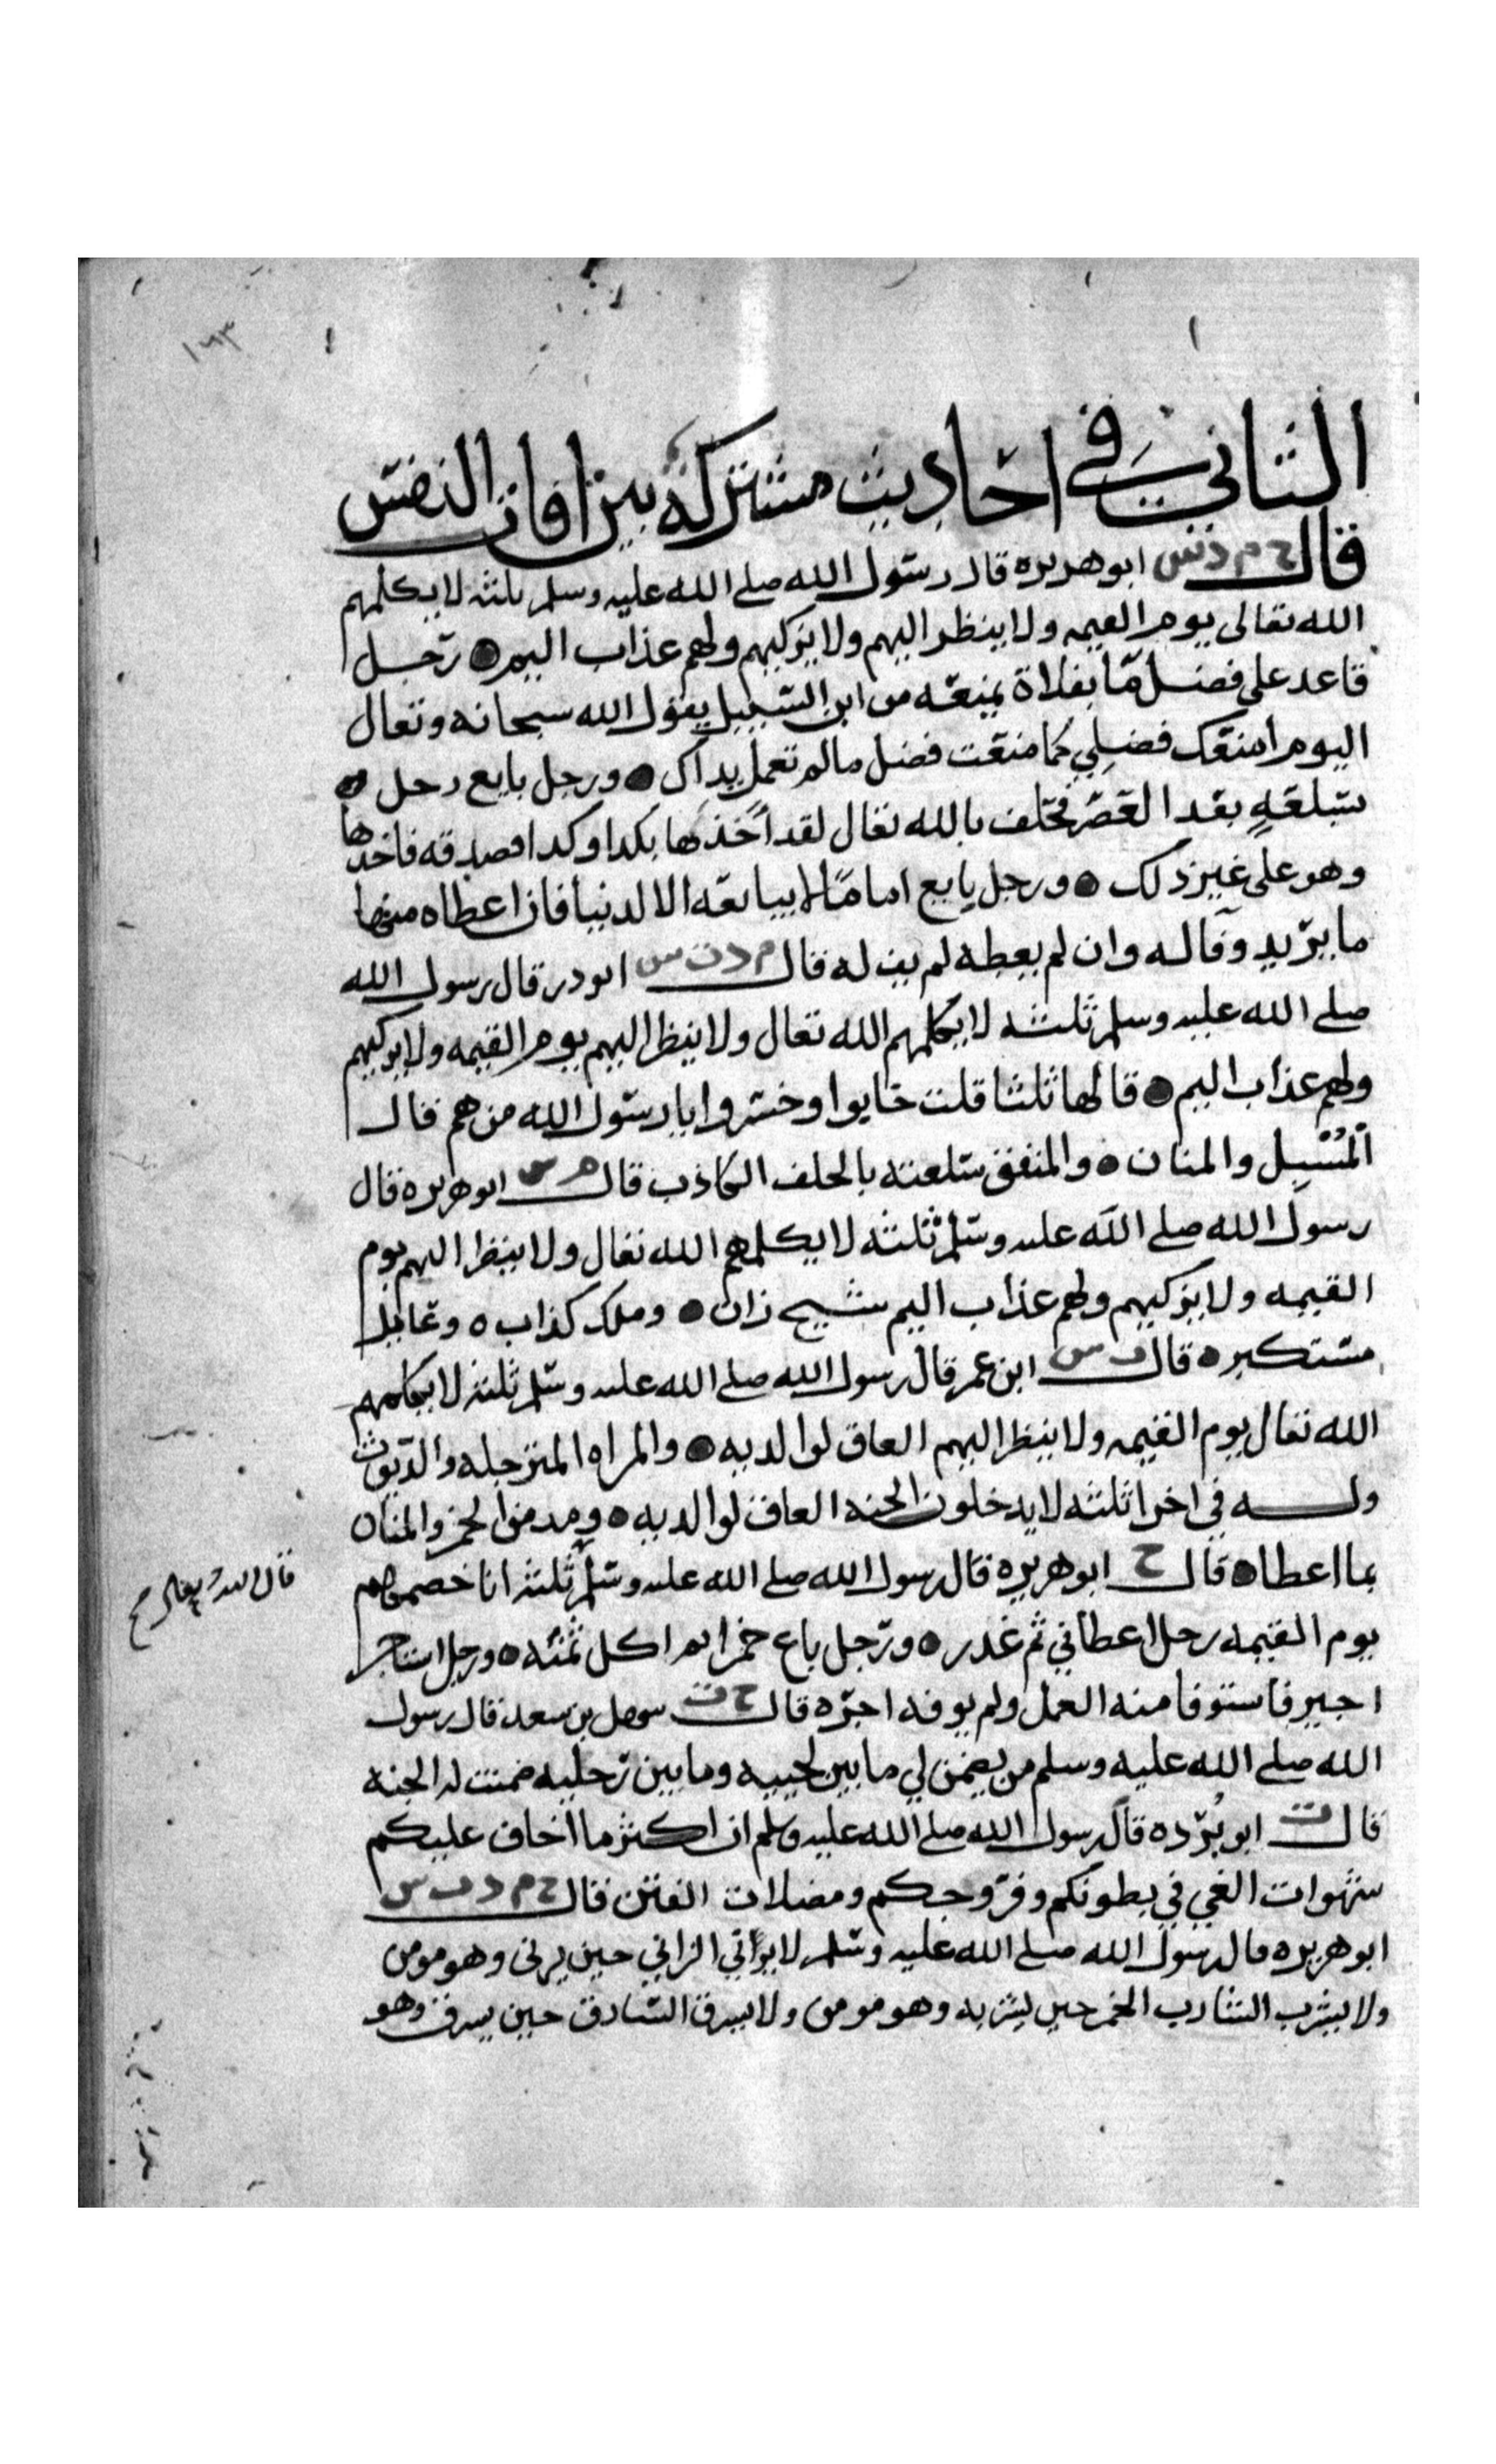 ١٦٣
الثاني في احاديث مشتركة بين افات النفس
قال خ م د س ابو هريره قال رسول الله صلى الله عليه وسلم ثلثه لا يكلمهم
الله تعالى يوم القيمه ولا ينظر اليهم ولا يزكيهم ولهم عذاب اليم رجل
قاعد على فضل مّا بفلاة يمنعه من ابن السبيل يقول الله سبحانه وتعال
اليوم امنعك فضلي كما منعت فضل مالم تعمل يداك ورجل بايع رجل
سلعةٍ بعد العصر فحلف بالله تعال لقد أخذها بكدا وكدا فصدقه فاخدها
وهو على غير ذلك ورجل بايع امامًا لا يبايعه الا لدنيا فان اعطاه منها
ما يريد وفا له وان لم يعطه لم يف له قال م د ت س ابو در قال رسول الله
صلى الله عليه وسلم ثلثه لا يكلمهم الله تعال ولا ينظر اليهم يوم القيمه ولا يزكيهم
ولهم عذاب اليم قالها ثلثا قلت خابوا وخسروا يا رسول الله من هم قال
المُسْبِل والمنان والمنفق سلعته بالحلف الكاذب قال م س ابو هريره قال
رسول الله صلى الله عليه وسلم ثلثه لا يكلمهم الله تعال ولا ينظر اليهم يوم
القيمه ولا يزكيهم ولهم عذاب اليم شيخ زان وملك كذاب وعايل
مستكبر قال س ابن عمر قال رسول الله صلى الله عليه وسلم ثلثه لا يكلمهم
الله تعال يوم القيمه ولا ينظر اليهم العاق لوالديه والمراه المترجله والديوث
وله في اخرا ثلثه لا يدخلون الجنه العاق لوالديه ومدمن الخمر والمنان
بما اعطا قال خ ابو هريره قال رسول الله صلى الله عليه وسلم ثلثه انا خصمهم
يوم القيمه رجل اعطا بي ثم غدر ورجل باع حرا ثم اكل ثمنه ورجل استاجر
اجير فاستوفا منه العمل ولم يوفه اجره قال خ ت سهل بن سعد قال رسول
الله صلى الله عليه وسلم من يضمن لي ما بين لحييه وما بين رجليه ضمنت له الجنه
قال ت ابو بُرده قال رسول الله صلى الله عليه وسلم ان اكثر ما اخاف عليكم
شهوات الغي في بطونكم وفروجكم ومضلات الفتن قال خ م د ت س
ابو هريره قال رسول الله صلى الله عليه وسلم لا يزاني الزاني حين يزنى وهو مومن
ولا يشرب الشارب الخمر حين يشربه وهو مومن ولا يسرق السارق حين يسرق وهو
قال الله تعالى صح